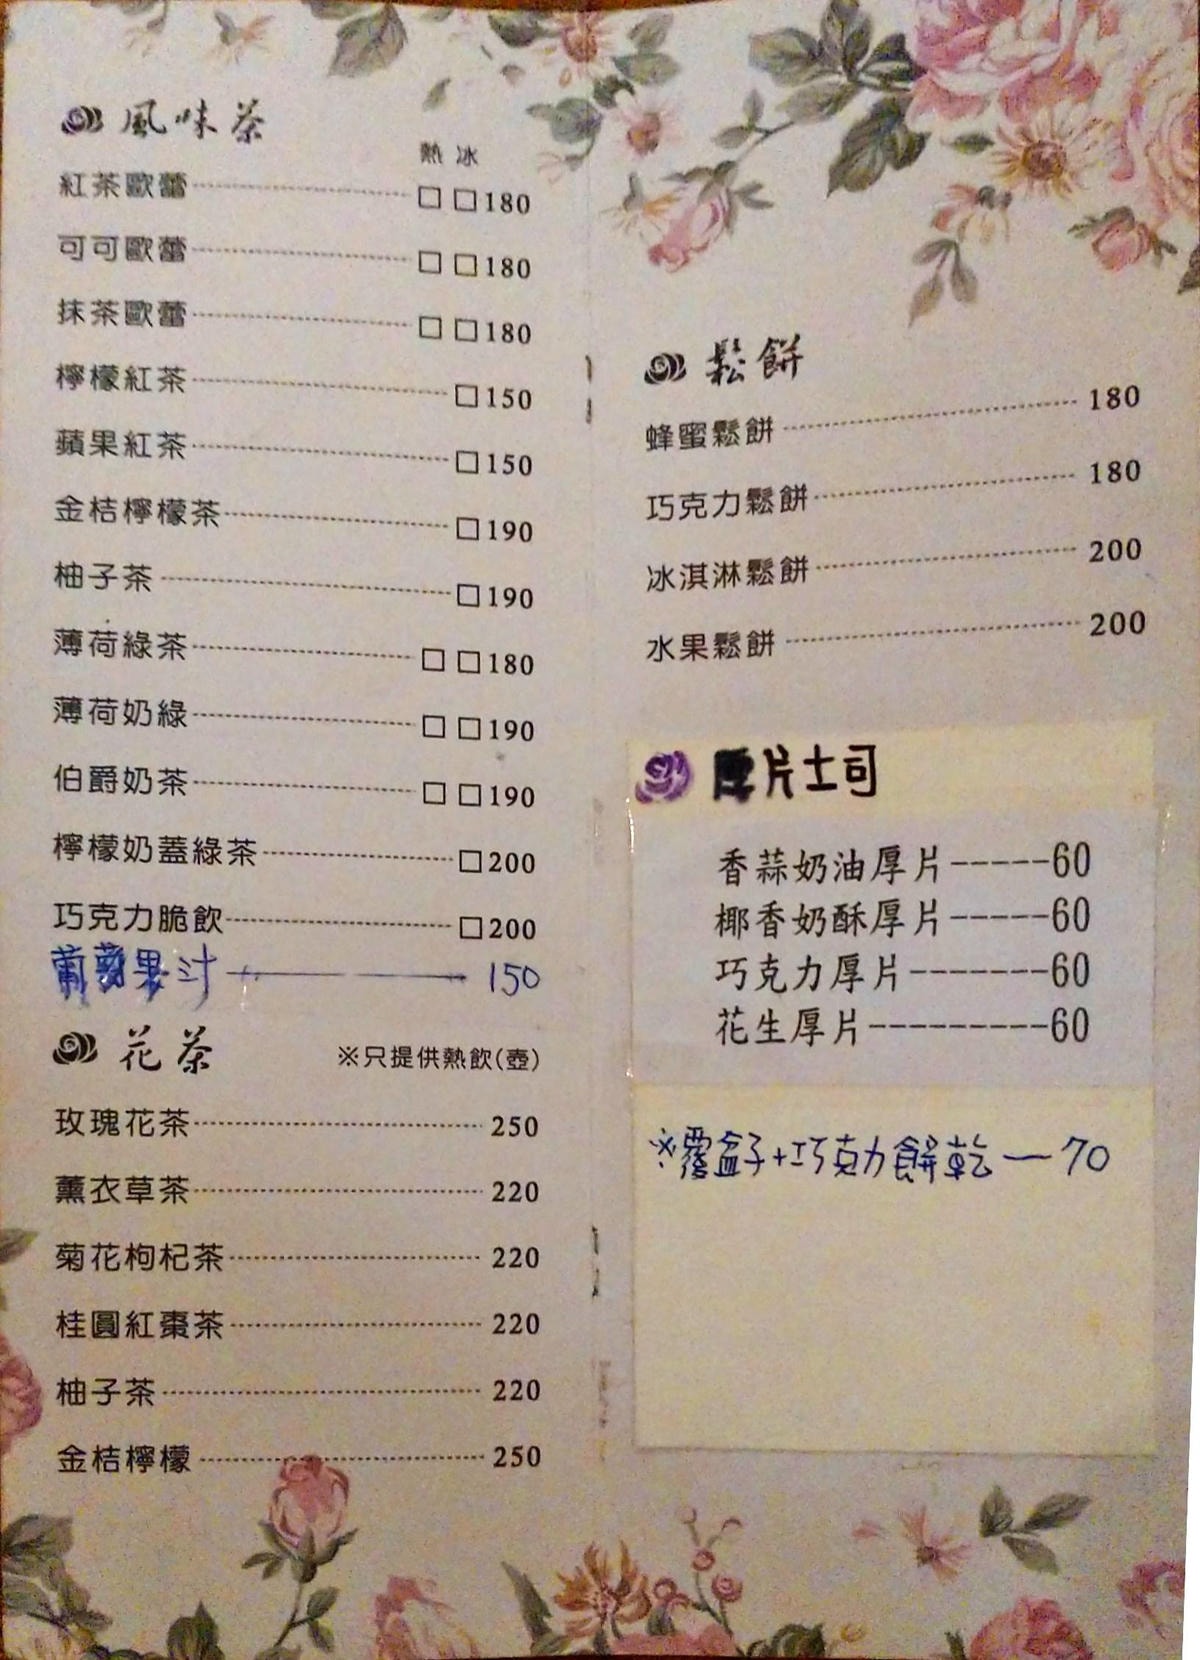 風味茶
熱 冰
紅茶歐蕾 □ □180
可可歐蕾 □ □180
抹茶歐蕾 □ □180
檸檬紅茶 □150
蘋果紅茶 □150
金桔檸檬茶 □190
柚子茶 □190
薄荷綠茶 □ □180
薄荷奶綠 □ □190
伯爵奶茶 □ □190
檸檬奶蓋綠茶 □200
巧克力脆飲 □200
果汁 150
花茶 ※只提供熱飲(壺)
玫瑰花茶 250
薰衣草茶 220
菊花枸杞茶 220
桂圓紅棗茶 220
柚子茶 220
金桔檸檬 250
鬆餅
蜂蜜鬆餅 180
巧克力鬆餅 180
冰淇淋鬆餅 200
水果鬆餅 200
厚片土司
香蒜奶油厚片-----60
椰香奶酥厚片-----60
巧克力厚片-------60
花生厚片---------60
※覆盆子+巧克力餅乾 — 70